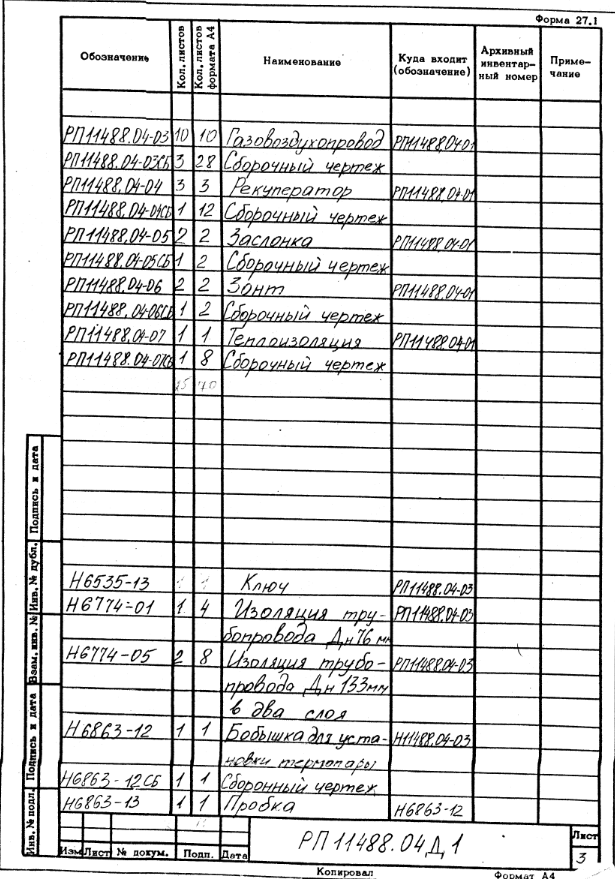 Форма 27.1
Обозначение Кол. листов Кол. листов формата А4 Наименование Куда входит (обозначение) Архивный инвентарный номер Примечание
РП11488.04-03 10 10 Газовоздухопровод РП11488.04-01
РП11488.04-03СБ 3 28 Сборочный чертеж
РП11488.04-04 3 3 Рекуператор РП11488.04-01
РП11488.04-04СБ 1 12 Сборочный чертеж
РП11488.04-05 2 2 Заслонка РП11488.04-01
РП11488.04-05СБ 1 2 Сборочный чертеж
РП11488.04-06 2 2 Зонт РП11488.04-01
РП11488.04-06СБ 1 2 Сборочный чертеж
РП11488.04-07 1 1 Теплоизоляция РП11488.04-01
РП11488.04-07СБ 1 8 Сборочный чертеж
25 70
Н6535-13 1 1 Ключ РП11488.04-03
Н6774-01 1 4 Изоляция тру- РП11488.04-03
бопровода Дн76 мм
Н6774-05 2 8 Изоляция трубо- РП11488.04-03
провода Дн 133мм
в два слоя
Н6863-12 1 1 Бобышка для уста- Н11488.04-03
новки термопары
Н6863-12СБ 1 1 Сборочный чертеж
Н6863-13 1 1 Пробка Н6863-12
РП 11488.04Д1
Лист
3
Изм Лист № докум. Подп. Дата
Копировал Формат А4
Инв. № подл. Подпись и дата Взам. инв. № Инв. № дубл. Подпись и дата